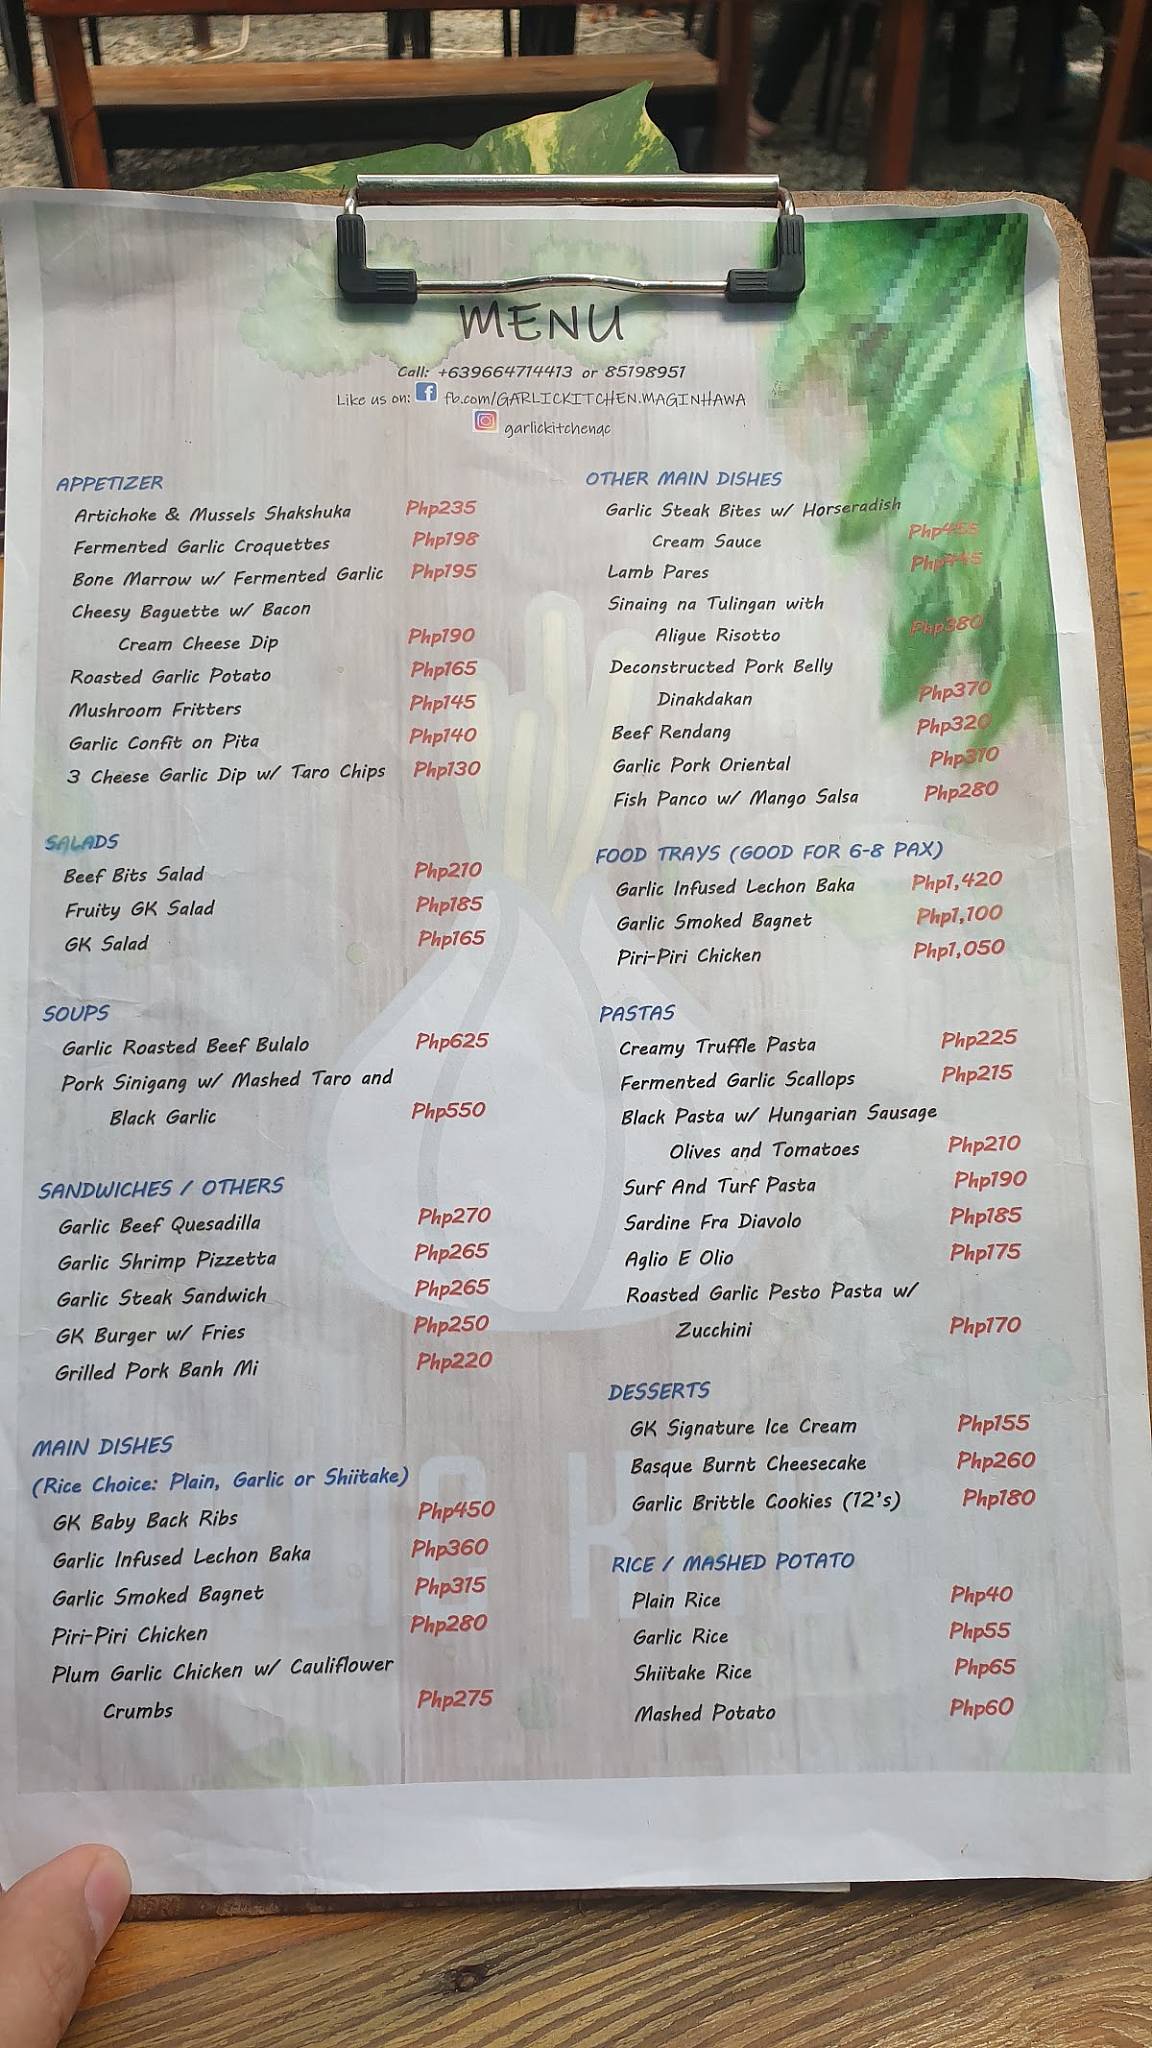 MENU
Call: +639664714413 or 85198951
Like us on: fb.com/GARLICKITCHEN.MAGINHAWA
garlickitchenqc
APPETIZER
Artichoke & Mussels Shakshuka Php235
Fermented Garlic Croquettes Php198
Bone Marrow w/ Fermented Garlic Php195
Cheesy Baguette w/ Bacon
Cream Cheese Dip Php190
Roasted Garlic Potato Php165
Mushroom Fritters Php145
Garlic Confit on Pita Php140
3 Cheese Garlic Dip w/ Taro Chips Php130
SALADS
Beef Bits Salad Php210
Fruity GK Salad Php185
GK Salad Php165
SOUPS
Garlic Roasted Beef Bulalo Php625
Pork Sinigang w/ Mashed Taro and
Black Garlic Php550
SANDWICHES / OTHERS
Garlic Beef Quesadilla Php270
Garlic Shrimp Pizzetta Php265
Garlic Steak Sandwich Php265
GK Burger w/ Fries Php250
Grilled Pork Banh Mi Php220
MAIN DISHES
(Rice Choice: Plain, Garlic or Shiitake)
GK Baby Back Ribs Php450
Garlic Infused Lechon Baka Php360
Garlic Smoked Bagnet Php315
Piri-Piri Chicken Php280
Plum Garlic Chicken w/ Cauliflower
Crumbs Php275
OTHER MAIN DISHES
Garlic Steak Bites w/ Horseradish
Cream Sauce Php455
Lamb Pares Php445
Sinaing na Tulingan with
Aligue Risotto Php380
Deconstructed Pork Belly
Dinakdakan Php370
Beef Rendang Php320
Garlic Pork Oriental Php310
Fish Panco w/ Mango Salsa Php280
FOOD TRAYS (GOOD FOR 6-8 PAX)
Garlic Infused Lechon Baka Php1,420
Garlic Smoked Bagnet Php1,100
Piri-Piri Chicken Php1,050
PASTAS
Creamy Truffle Pasta Php225
Fermented Garlic Scallops Php215
Black Pasta w/ Hungarian Sausage
Olives and Tomatoes Php210
Surf And Turf Pasta Php190
Sardine Fra Diavolo Php185
Aglio E Olio Php175
Roasted Garlic Pesto Pasta w/
Zucchini Php170
DESSERTS
GK Signature Ice Cream Php155
Basque Burnt Cheesecake Php260
Garlic Brittle Cookies (12's) Php180
RICE / MASHED POTATO
Plain Rice Php40
Garlic Rice Php55
Shiitake Rice Php65
Mashed Potato Php60